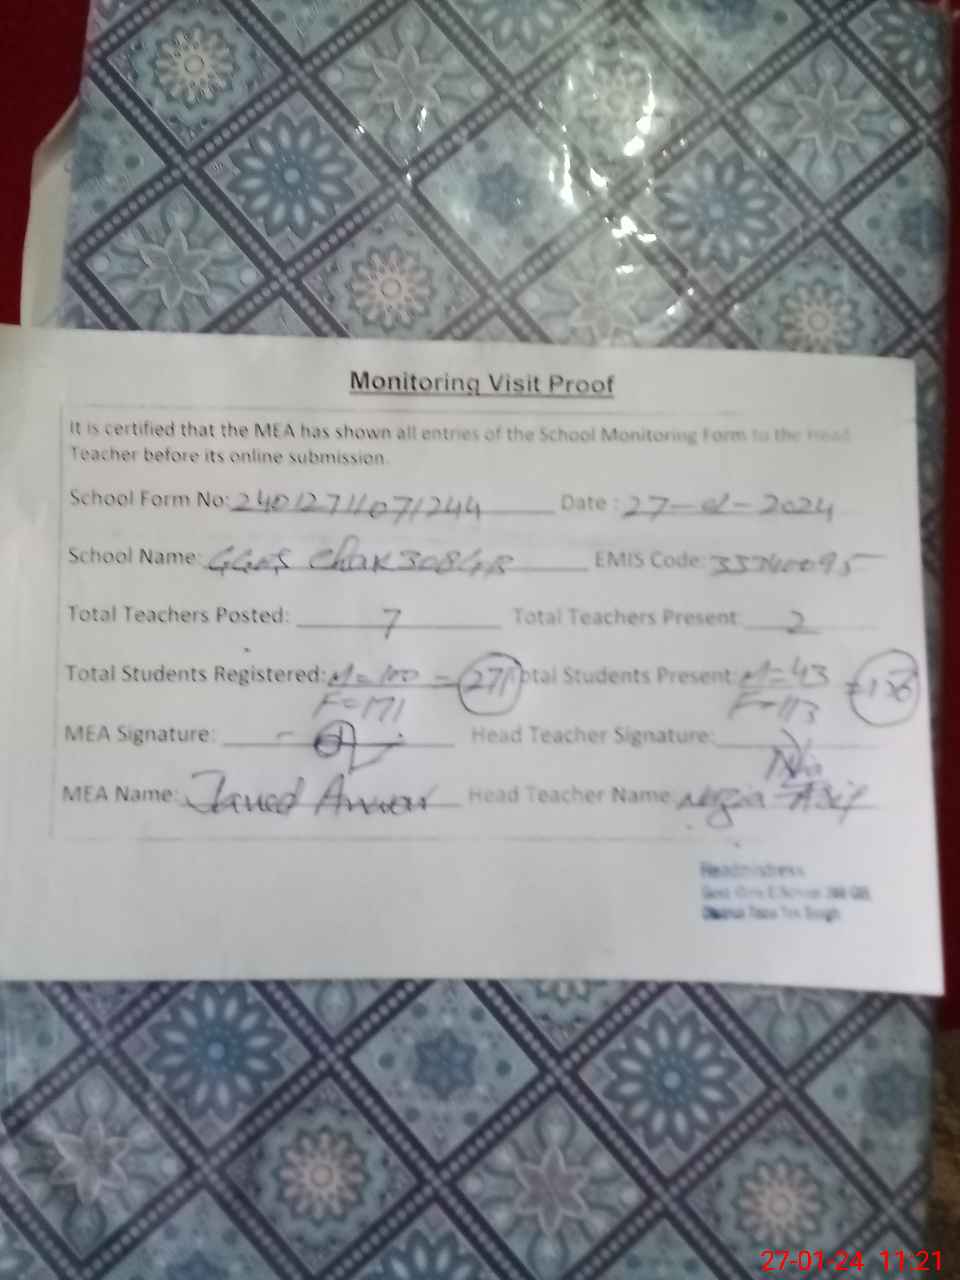 Monitoring Visit Proof
It is certified that the MEA has shown all entries of the School Monitoring Form to the Head
Teacher before its online submission.
School Form No: 24012711071244 Date : 27-01-2024
School Name: GGES Chak 308 GB EMIS Code: 33340095
Total Teachers Posted: 7 Total Teachers Present: 2
Total Students Registered: M=100 = 271 Total Students Present: M=43 =156
F=171 F=113
MEA Signature: Head Teacher Signature:
MEA Name: Javed Anwar Head Teacher Name Asif
Headmistress
27-01-24 11:21